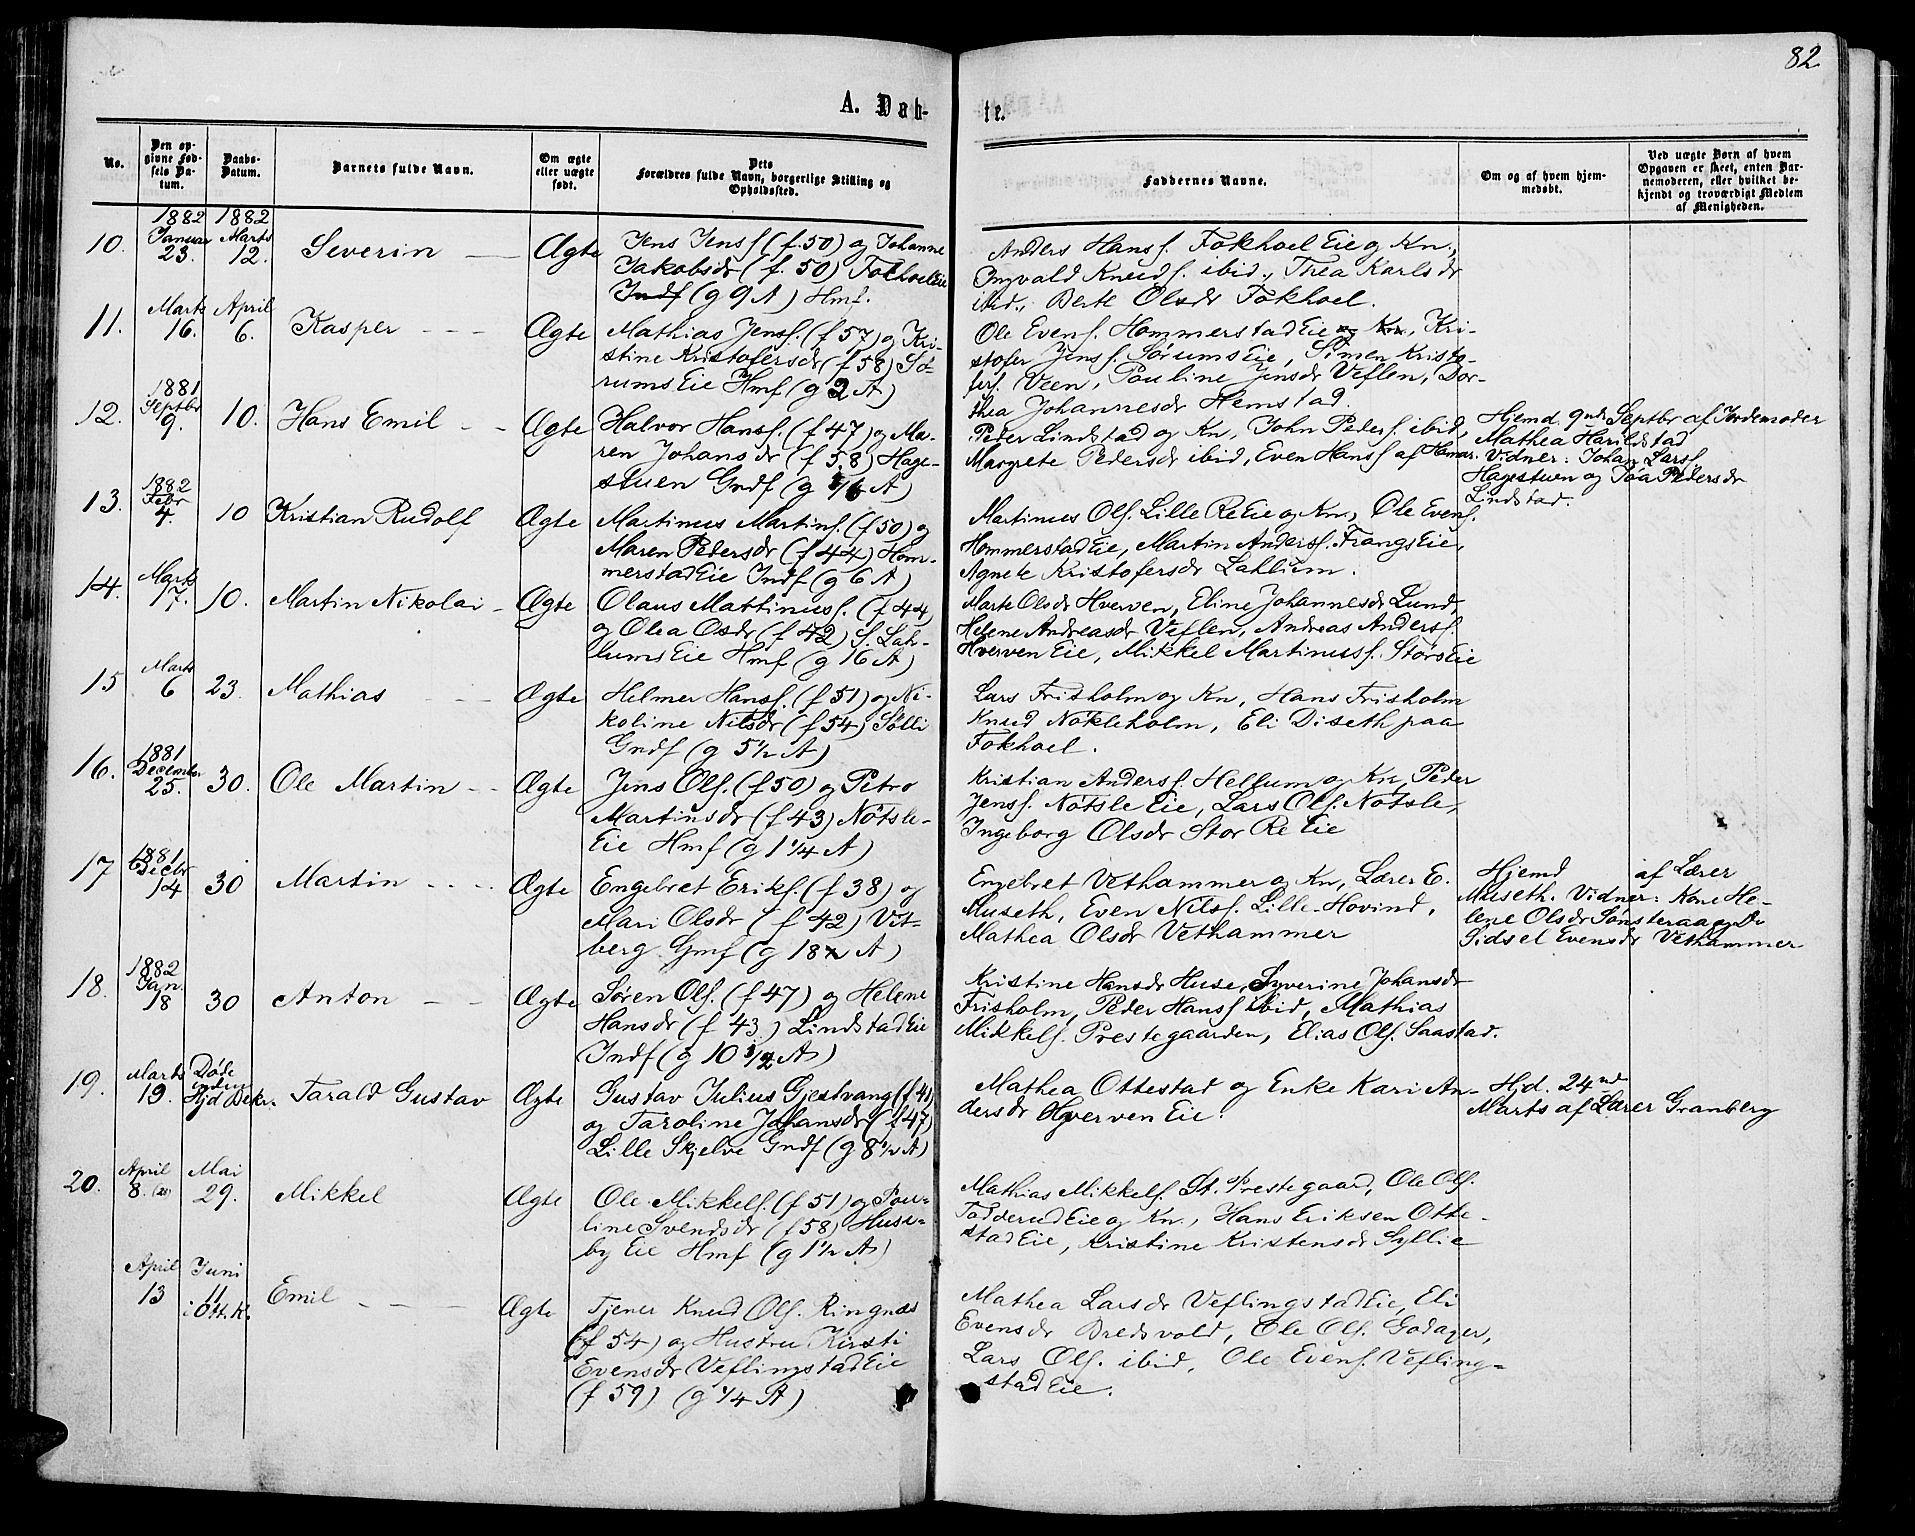 82
A. Døb-
te.
No.
Den op-
givne Fød-
sels Da-
tum.
Daabs-
Datum.
Barnets fulde Navn.
Om ægte
eller uægte
født.
Dets
Forældres fulde Navn, borgerlige Stilling og
Opholdssted.
Faddernes Navne.
Om og af hvem hjem-
medøbt.
Ved uægte Børn af hvem
Opgaven er skeet, enten Bar-
nemoderen, eller hvilket be-
kjendt og troværdigt Medlem
af Menigheden.
10.
1882
Januar
23.
1882
Marts
12.
Severin
Ægte
Jens Jensf (f. 50) og Johanne
Jakobsdr (f. 50) Fokhoel Eie
Indf (g 9 A) Hmf.
Anders Hansf. Fokhoel Eie og Kn.,
Ingvald Knudsf. ibid., Thea Karlsdr
ibid., Berte Olsdr Fokhoel.
11.
Marts
16.
April
6.
Kasper
Ægte
Mathias Jensf. (f 57) og Kri-
stine Kristofersdr (f 58) Sø-
rums Eie Hmf (g 2 A)
Ole Evensf. Hommerstad Eie og Kn., Kri-
stofer Jensf. Sørums Eie, Simen Kristo-
fersf. Veen, Pauline Jensdr Veflen, Dor-
thea Johannesdr Hemstad.
12.
1881
Septbr
9.
10.
Hans Emil
Ægte
Halvor Hansf. (f 47) og Ma-
ren Johansdr (f 58) Hage-
stuen Gmdf (g 1/6 A)
Peder Lindstad og Kn, John Pedersf. ibid,
Margrete Pedersdr ibid, Even Hansf af Hamar.
Hjemd. 9nde Septbr af Jordemoder
Mathea Harildstad
Vidner: Johan Larsf
Hagestuen og Tøa Pedersdr
Lindstad.
13.
1882
Febr
4.
10
Kristian Rudolf
Ægte
Martinus Martinsf. (f 50) og
Maren Pedersdr (f 44) Hom-
merstad Eie Indf (g 6 A)
Martinus Olsf. Lille Re Eie og Kn., Ole Evensf.
Hommerstad Eie, Martin Andersf. Frangs Eie,
Agnete Kristofersdr Lahlum.
14.
Marts
17.
10.
Martin Nikolai
Ægte
Olaus Mattinusf. (f 44)
og Olea Osdr (f 42) S. Lah-
lums Eie Hmf (g 16 A)
Marte Olsdr Hverven, Eline Johannesdr Lund,
Helene Andreasdr Veflen, Andreas Andersf.
Hverven Eie, Mikkel Martinusf. Størs Eie
15
Marts
6
23.
Mathias
Ægte
Helmer Hansf. (f 51) og Ni-
koline Nilsdr (f 54) Sølli
Gmdf (g 5 1/2 A)
Lars Frisholm og Kn, Hans Frisholm
Knud Nokleholm, Eli Diseth paa
Fokhoel.
16.
1881
December
25.
30.
Ole Martin
Ægte
Jens Olsf. (f 50) og Petro
Martinsdr (f 43) Nøtsle-
Eie Hmf (g 1 1/4 A)
Kristian Andersf. Hellum og Kn, Peder
Jensf. Nøtsle Eie, Lars Olsf. Nøtsle,
Ingeborg Olsdr Stor Re Eie
17
1881
Decbr
14
30
Martin
Ægte
Engebret Eriksf. (f 38) og
Mari Olsdr (f 42) Vet-
berg Gmf (g 18 A)
Engebret Vethammer og Kn, Lærer E.
Museth, Even Nilsf. Lille-Hovind,
Mathea Olsdr Vethammer
Hjemd af Lærer
Museth. Vidner: Kone He-
lene Olsdr Sønsteraa og
Sidsel Evensdr Vethammer
18.
1882
Jan.
18
30
Anton
Ægte
Søren Olsf. (f 47) og Helene
Hansdr (f 43) Lindstad Eie
Indf (g 10 1/2 A)
Kristine Hansdr Huse, Syverine Johansdr
Frisholm, Peder Hansf ibid, Mathias
Mikkelsf. Prestegaarden, Elias Olsf. Saastad.
19.
Marts
19.
Døde
inden
Hjd Bekr.
Tarald Gustav
Ægte
Gustav Julius Gjestvang (f 41)
og Taroline Johansdr (f 47)
Lille Skjelve Gmdf (g 8 1/2 A)
Mathea Ottestad og Enke Kari An-
dersdr Hverven Eie.
Hjd. 24nd
Marts af Lærer Granberg
20.
April
8.
Mai
29.
Mikkel
Ægte
Ole Mikkelsf. (f 51) og Pau-
line Svendsdr (f 58) Huse-
by Eie Hmf (g 1 1/2 A)
Mathias Mikkelsf. St. Prestegaard, Ole Olsf.
Fodderud Eie og Kn., Hans Eriksen Otte-
stad Eie, Kristine Kristensdr Syllie
April
13
Juni
11
i Ott. K.
Emil
Ægte
Tjener Knud Olsf. Ringnæs
(f 54) og Hustru Kirsti
Evensdr Veflingstad Eie
(f 59) (g 1/4 A)
Mathea Larsdr Veflingstad Eie, Eli
Evensdr Bredvold, Ole Olsf. Godager,
Lars Olsf. ibid, Ole Evensf. Vefling-
stad Eie.